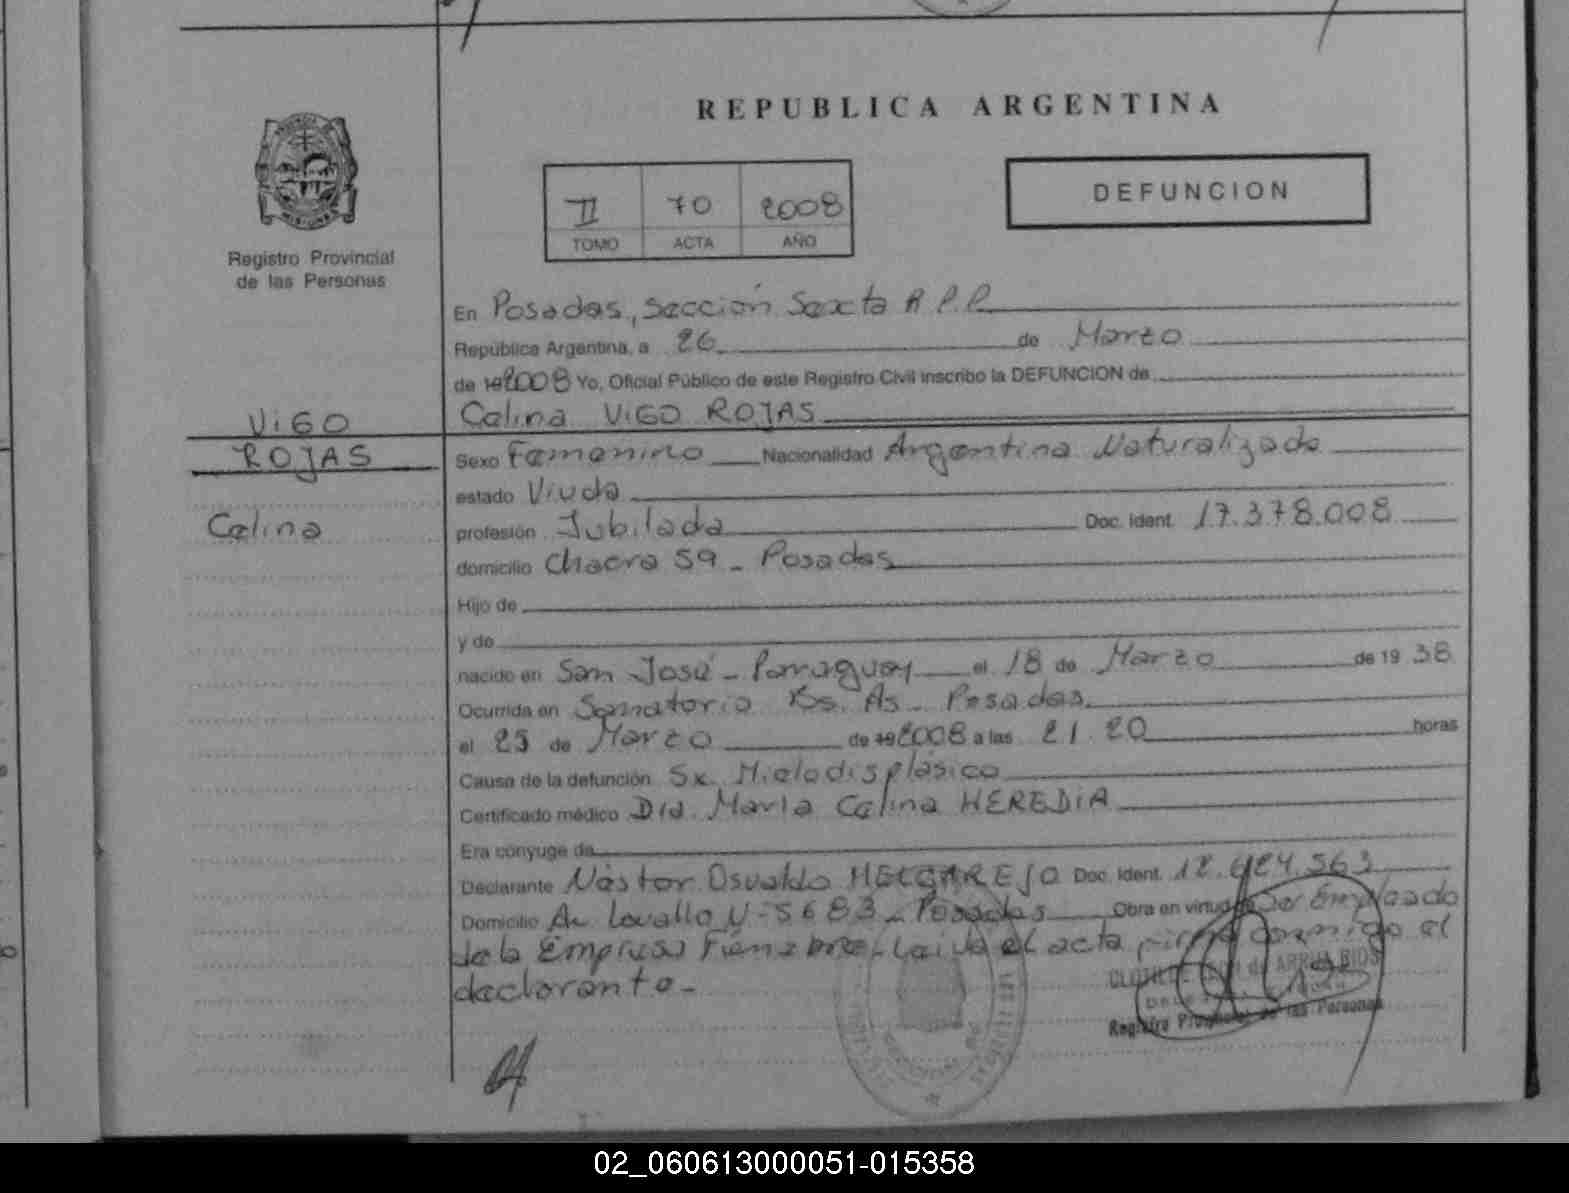 REPUBLICA ARGENTINA
II 70 2008
TOMO ACTA AÑO
DEFUNCION
Registro Provincial
de las Personas
En Posadas, Sección Sexta R.P.P.
República Argentina, a 26 de Marzo
de 19 2008 Yo, Oficial Público de este Registro Civil inscribo la DEFUNCION de
Celina ViGO ROJAS
ViGO
ROJAS
Celina
Sexo Femenino Nacionalidad Argentina Naturalizada
estado Viuda
profesión Jubilada Doc. Ident. 17.378.008
domicilio Chacra 59 - Posadas
Hijo de
y de
nacido en San José - Paraguay el 18 de Marzo de 19 38
Ocurrida en Sanatorio Bs. As. Posadas
el 25 de Marzo de 19 2008 a las 21.20 horas
Causa de la defunción Sx. Mielodisplásico
Certificado médico Dra. María Celina HEREDiA
Era cónyuge de
Declarante Néstor Osvaldo MELGAREJO Doc. Ident. 12.624.563
Domicilio Av Lavalle N-5683 - Posadas Obra en virtud de Ser Empleado
de la Empresa Fúnebre - Leída el acta firma conmigo el
declarante -
CLOTILDE de ARRUA RIOS
Registro Provincial de las Personas
02_060613000051-015358